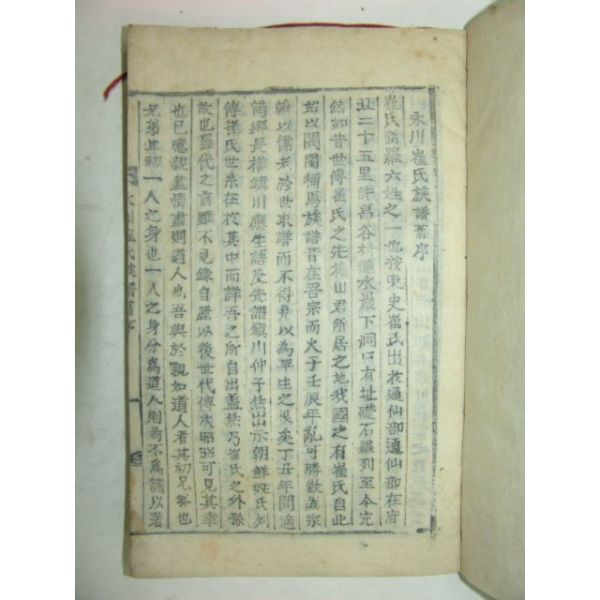 永川崔氏族譜舊序
崔氏新羅六姓之一也按東史崔氏出於通仙部通仙部在府
北二十五里許昌谷村 水巖下洞口有址礎石羅列至今完
然如昔世傳崔氏之先 山君所居之地我國之有崔氏自此
始以閥閱稱焉族譜昔在吾宗而火于壬辰年亂可勝歎哉宗
以儒老於世求譜而不得見以為畢生之恨矣丁丑年間適
謁鄉長權鎭川應生語及先譜鎭川仲子 出示朝鮮姓氏列
傳崔氏世系在於其中而詳吾之所自出盖 乃崔氏之外孫
故也羅代之前雖不見錄自麗以後世代傳次昭 可見其幸
也已應親盡情盡則道人也吾與於親如道人者其初兄弟也
兄弟其初一人之身也一人之身分為道人則若不為譜以著
永川崔氏族譜舊序